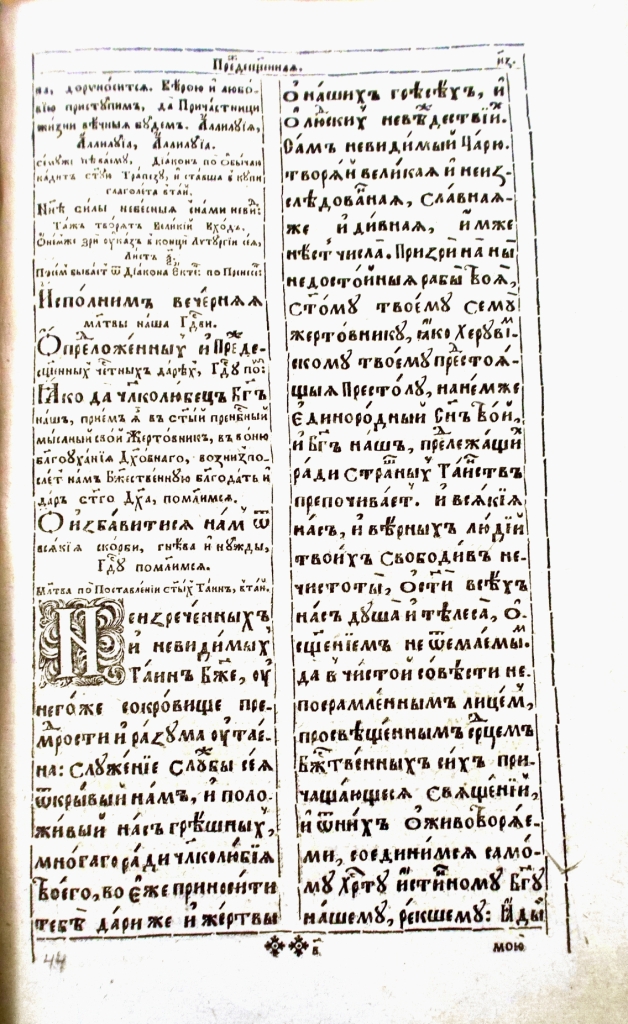 Преждеѡсщ҃е́нная. н҃з.
на, дорꙋноси́тся. Вѣ́рою и҆ любо́-
вїю пристꙋпи́мъ, да Прича́стници
жи́зни вѣ́чныя бꙋ́демъ. Аллилꙋ́їа,
Аллилꙋ́їа, Аллилꙋ́їа.
Семꙋ́же пѣва́емꙋ, Дїа́конъ по Обы́чаю
кади́тъ ст҃ꙋю Трапе́зꙋ, и҆ ста́вша в кꙋ́пѣ
глаго́лета в та́й.
Нн҃ѣ си́лы небе́сныя с на́ми неви:
Та́жъ творя́тъ Вели́кїй Вхо́да.
Ѻ не́мже зри ᲂу҆ка́зъ в конци́ Литꙋргі́и сея̀,
Ли́стъ
Пото́мъ быва́етъ ѿ Дїа́кона Єктє: по Пренесе:
Испо́лнимъ вече́рняя
мл҃твы на́ша Гдⷭ҇ви.
Ѻ Предложе́нныхъ и҆ Прⷣе-
ѡсщ҃е́нныхъ че́тныхъ даре́хъ, Гдⷭ҇ꙋ по:
Ꙗ҆́ко да чл҃колю́бецъ Бг҃ъ
на́шъ, прїе́мъ ѧ҆̀ въ ст҃ы́й прен҃бный
мы́сленный свой Же́ртовникъ, въ воню̀
бл҃гоꙋха́нїя Дх҃о́внаго, возниспо-
сле́тъ на́мъ Бж҃е́ственнꙋю благода́ть и҆
да́ръ ст҃го Дх҃а, помл҃имся.
Ѻ и҆зба́витися на́мъ ѿ
вся́кїя ско́рби, гнѣ́ва и҆ нꙋ́жды,
Гдⷭ҇ꙋ помл҃имся.
Мл҃тва по Поставле́нїи ст҃ы́хъ Та́инъ, в та́й.
Неизрече́нныхъ
и҆ неви́димыхъ
Та́инъ Бж҃е, ᲂу҆
него́же сокро́вище пре-
мⷣрости и҆ ра́зꙋма ᲂу҆тае-
на̀: слꙋже́нїе слꙋ́жбы сея̀
ѿкры́вый на́мъ, и҆ поло-
жи́вый на́съ грѣ́шныхъ,
мно́гаго ра́ди чл҃колю́бїя
Твоего̀, во є҆́же приноси́ти
тебѣ̀ да́ри же и҆ же́ртвы
ѻ на́шихъ грѣсѣ́хъ, и҆
ѻ лю́дскихъ невѣ́дествїй.
Са́мъ неви́димый Царю̀.
творя́й вели́кая и҆ неиз-
слѣ́дованная, сла́вная-
же и҆ ди́вная, и҆́мже
нѣ́сть числа̀. При́зри на ны̀
недосто́йныя рабы̀ Твоя̀,
ст҃омꙋ твоемꙋ̀ семꙋ̀
же́ртовникꙋ, ꙗ҆́ко Херꙋви́м-
скомꙋ твоемꙋ̀ пред̾стоя́-
щыя Престо́лꙋ, на не́мже
є҆диноро́дный Сн҃ъ Твой,
и҆ Бг҃ъ на́шъ, предлежа́щїй
ра́ди стра́шныхъ Та́инствъ
препочива́етъ. и҆ вся́кїя
на́съ, и҆ вѣ́рныхъ лю́дїй
твои́хъ свободи́въ не-
чистоты̀, ѻ҆ст҃ѝ всѣ́хъ
на́съ дꙋша̀ и҆ тѣлеса̀, ѻ҆-
сщ҃е́нїемъ не ѿе́маемымъ.
да в чи́стой со́вѣсти не-
посра́мленнымъ лице́мъ,
просвѣще́ннымъ срⷣцемъ
Бжⷭ҇твенныхъ си́хъ при-
чаща́ющеся свяще́нїй,
и҆ ѿ ни́хъ ѻживотворя́е-
ми, соедини́мся само́-
мꙋ Хрⷭ҇тꙋ и҆́стинномꙋ Бг҃ꙋ
на́шемꙋ, ре́кшемꙋ: Ꙗ҆ды́й
мою̀
44